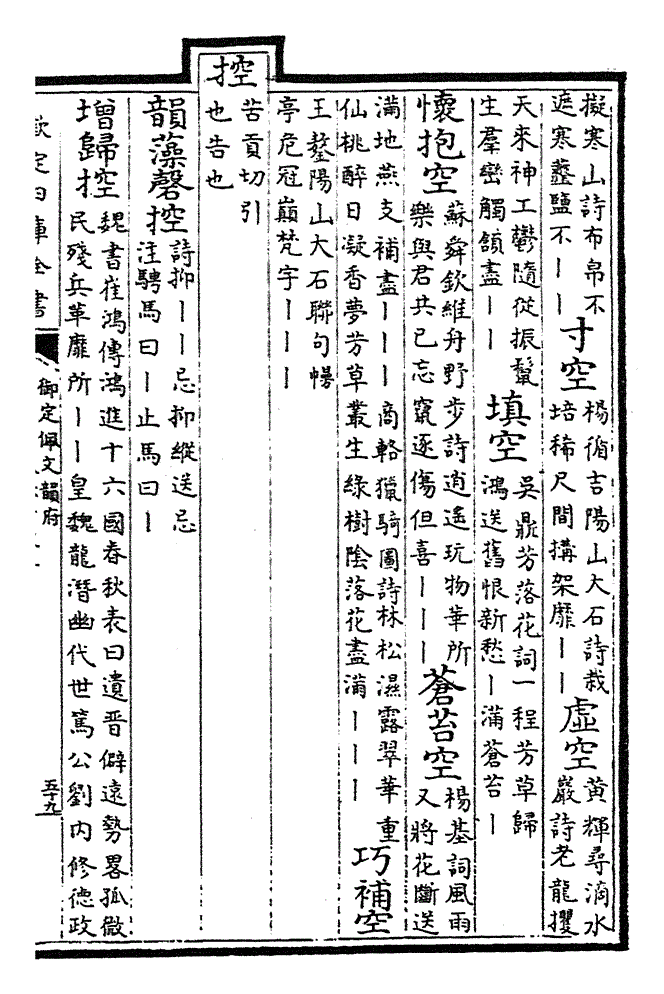 擬寒山詩布帛不
遮寒虀鹽不丨丨
寸空
楊循吉陽山大石詩栽
培稀尺間搆架靡丨丨
虛空
黄輝尋滴水
巖詩老龍攫
天來神工鬱隨從振鬣
生羣巒觸頷盡丨丨
填空
吳鼎芳落花詞一程芳草歸
鴻送舊恨新愁丨滿蒼苔丨
懷抱空
蘇舜欽維舟野步詩逍遙玩物華所
樂與君共已忘竄逐傷但喜丨丨丨
蒼苔空
楊基詞風雨
又將花斷送
滿地燕支補盡丨丨丨商輅獵騎圖詩林松濕露翠華重
仙桃醉日凝香夢芳草叢生綠樹陰落花盡滿丨丨丨
巧補空
王鏊陽山大石聯句幔
亭危冠巔梵字丨丨丨
控
苦貢切引
也告也
韻藻磬控
詩抑丨丨忌抑縱送忌
注騁馬曰丨止馬曰丨
增歸控
魏書崔鴻傳鴻進十六國春秋表曰遺晉僻遠勢畧孤微
民殘兵革靡所丨丨皇魏龍潛幽代世篤公劉内修德政
欽定四庫全書
御定佩文韻府
五十九